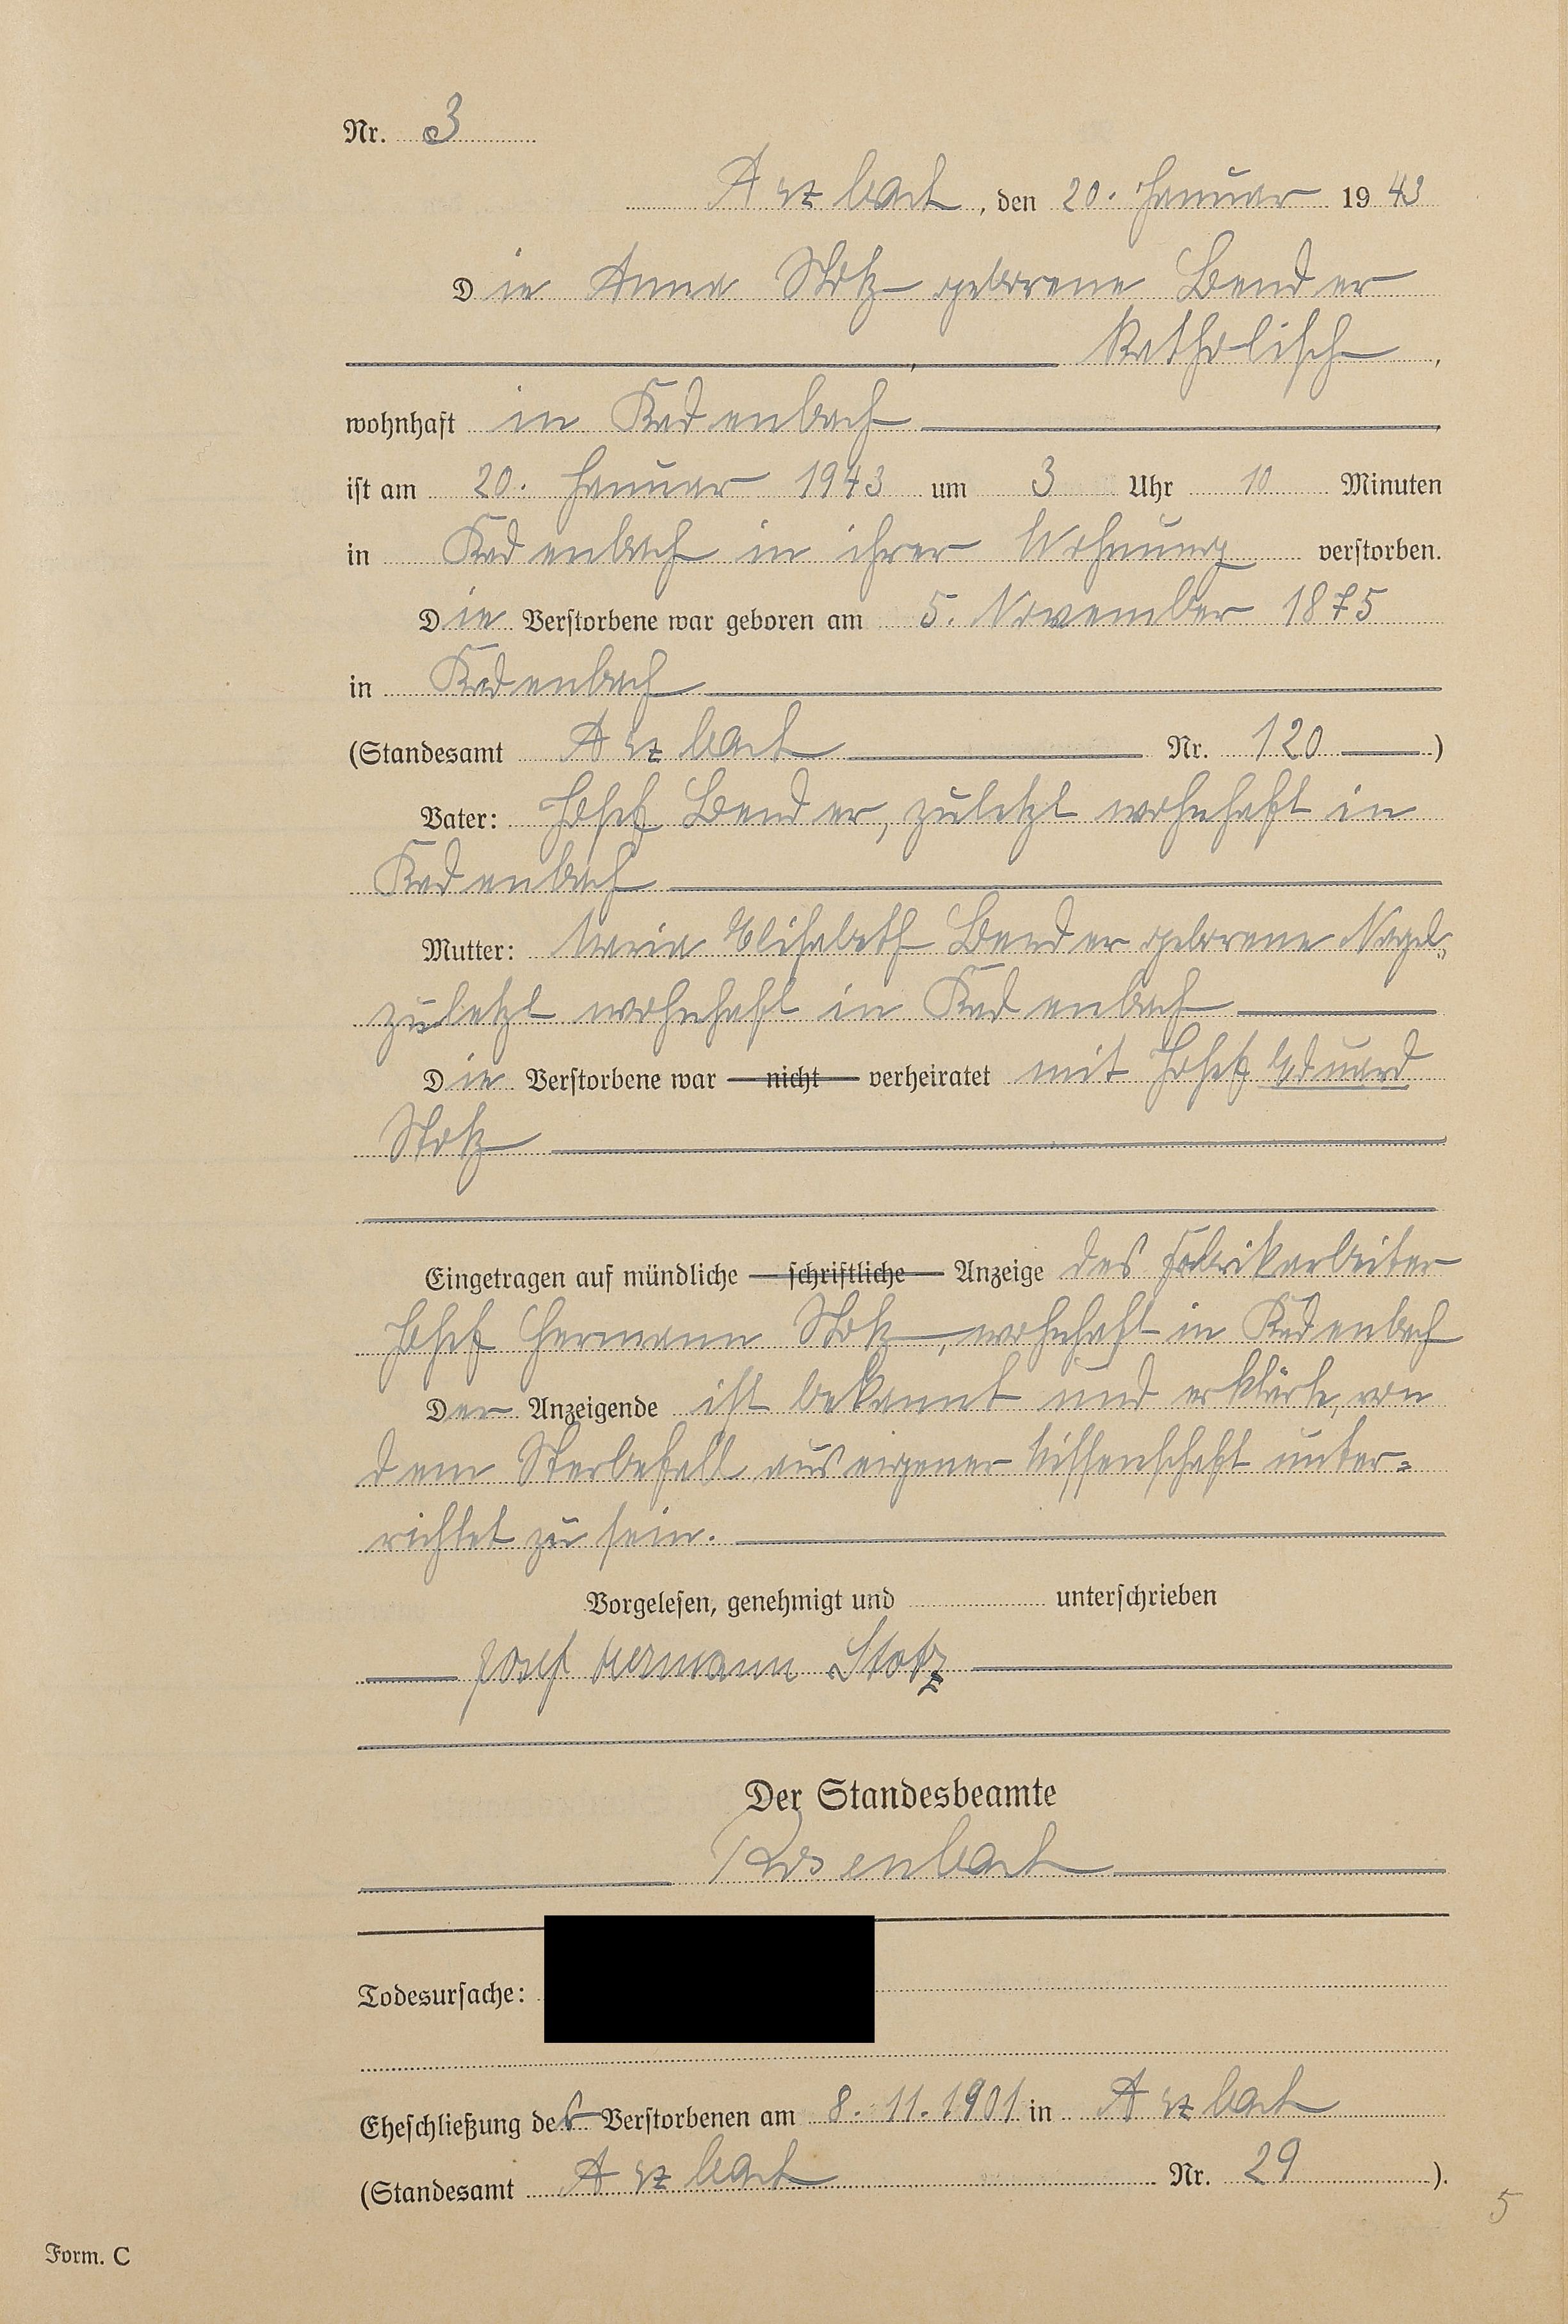 Nr. 3
Arzbach, den 20. Januar 1943
Die Anna Stotz geborene Bender
katholisch,
wohnhaft in Kadenbach
ist am 20. Januar 1943 um 3 Uhr 10 Minuten
in Kadenbach in ihrer Wohnung verstorben.
Die Verstorbene war geboren am 5. November 1875
in Kadenbach
(Standesamt Arzbach Nr. 120)
Vater: Josef Bender, zuletzt wohnhaft in
Kadenbach
Mutter: Maria Elisabeth Bender geborene Nagel,
zuletzt wohnhaft in Kadenbach
Die Verstorbene war nicht verheiratet mit Josef Eduard
Stotz
Eingetragen auf mündliche schriftliche Anzeige des Fabrikarbeiter
Josef Hermann Stotz, wohnhaft in Kadenbach
Der Anzeigende ist bekannt und erklärte, von
dem Sterbefall aus eigener Wissenschaft unter=
richtet zu sein.
Vorgelesen, genehmigt und unterschrieben
Josef Hermann Stotz
Der Standesbeamte
Rosenbach
Todesursache:
Eheschließung der Verstorbenen am 8.11.1901 in Arzbach
(Standesamt Arzbach Nr. 29).
5
Form. C